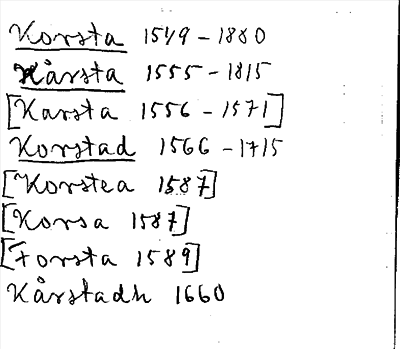 Korsta 1549-1880
Kårsta 1555-1815
[Karsta 1556-1571]
Korstad 1566-1715
[Korstea 1587]
[Korsa 1587]
[Forsta 1589]
Kårstadh 1660